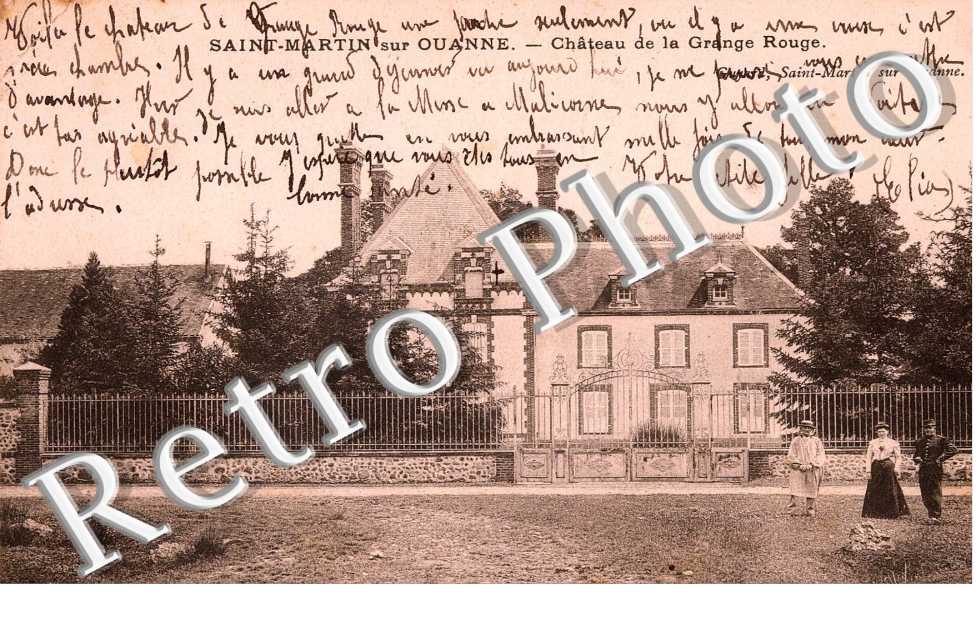 Voila le chateau de Grange Rouge une partie seulement, ou il y a une vieux c'est
SAINT-MARTIN sur OUANNE. — Château de la Grange Rouge.
chambres. Il y a un grand déjeuner ou aujourd'hui, je ne puis vous en
Saint-Martin sur Ouanne.
d'avantage. Hier je suis aller a la Messe a Malicorne nous y allons en voiture
c'est pas agréable. Je vous quitte en vous embrassant mille fois de tout mon cœur.
Donc le plutôt possible J'espère que vous êtes tous en Votre petite fille Elia
l'adresse. bonne santé.
Retro Photo